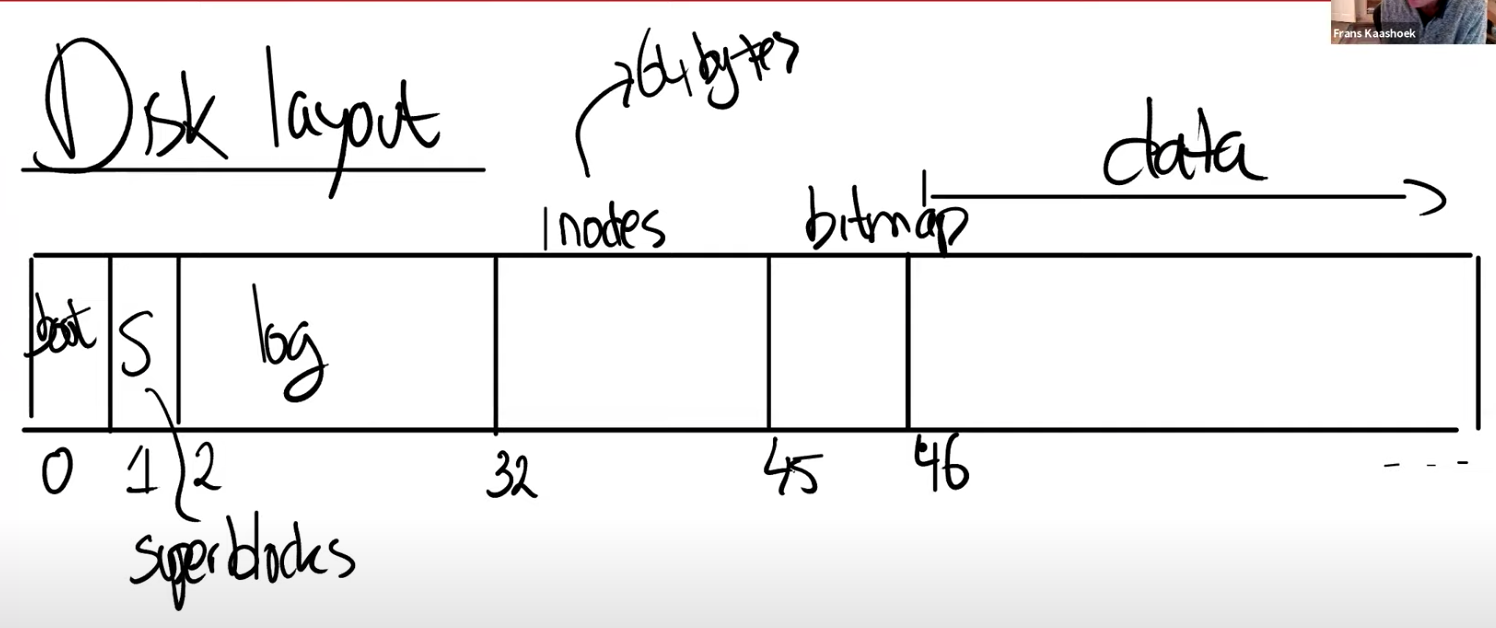 Frans Kaashoek
Disk layout
64 bytes
data
inodes
bitmap
boot
S
log
0
1
2
32
45
46
- - -
superblocks